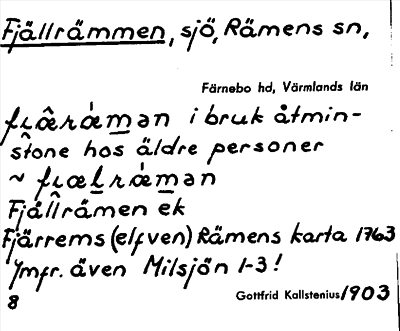 Fjällrämmen, sjö, Rämens sn,
Färnebo hd, Värmlands län
i bruk åtmin-
stone hos äldre personer
~
Fjällrämen ek
Fjärrems (elfven) Rämens karta 1763
Jmfr. även Milsjön 1-3!
8 Gottfrid Kallstenius 1903